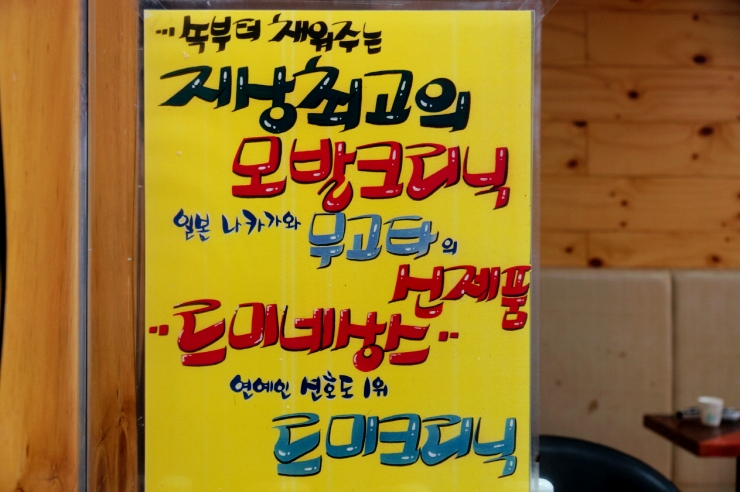 …속부터 채워주는
세상최고의
모발크리닉
일본 나카가와 무코타의
신제품
"르미네상스"
연예인 선호도 1위
르미크리닉